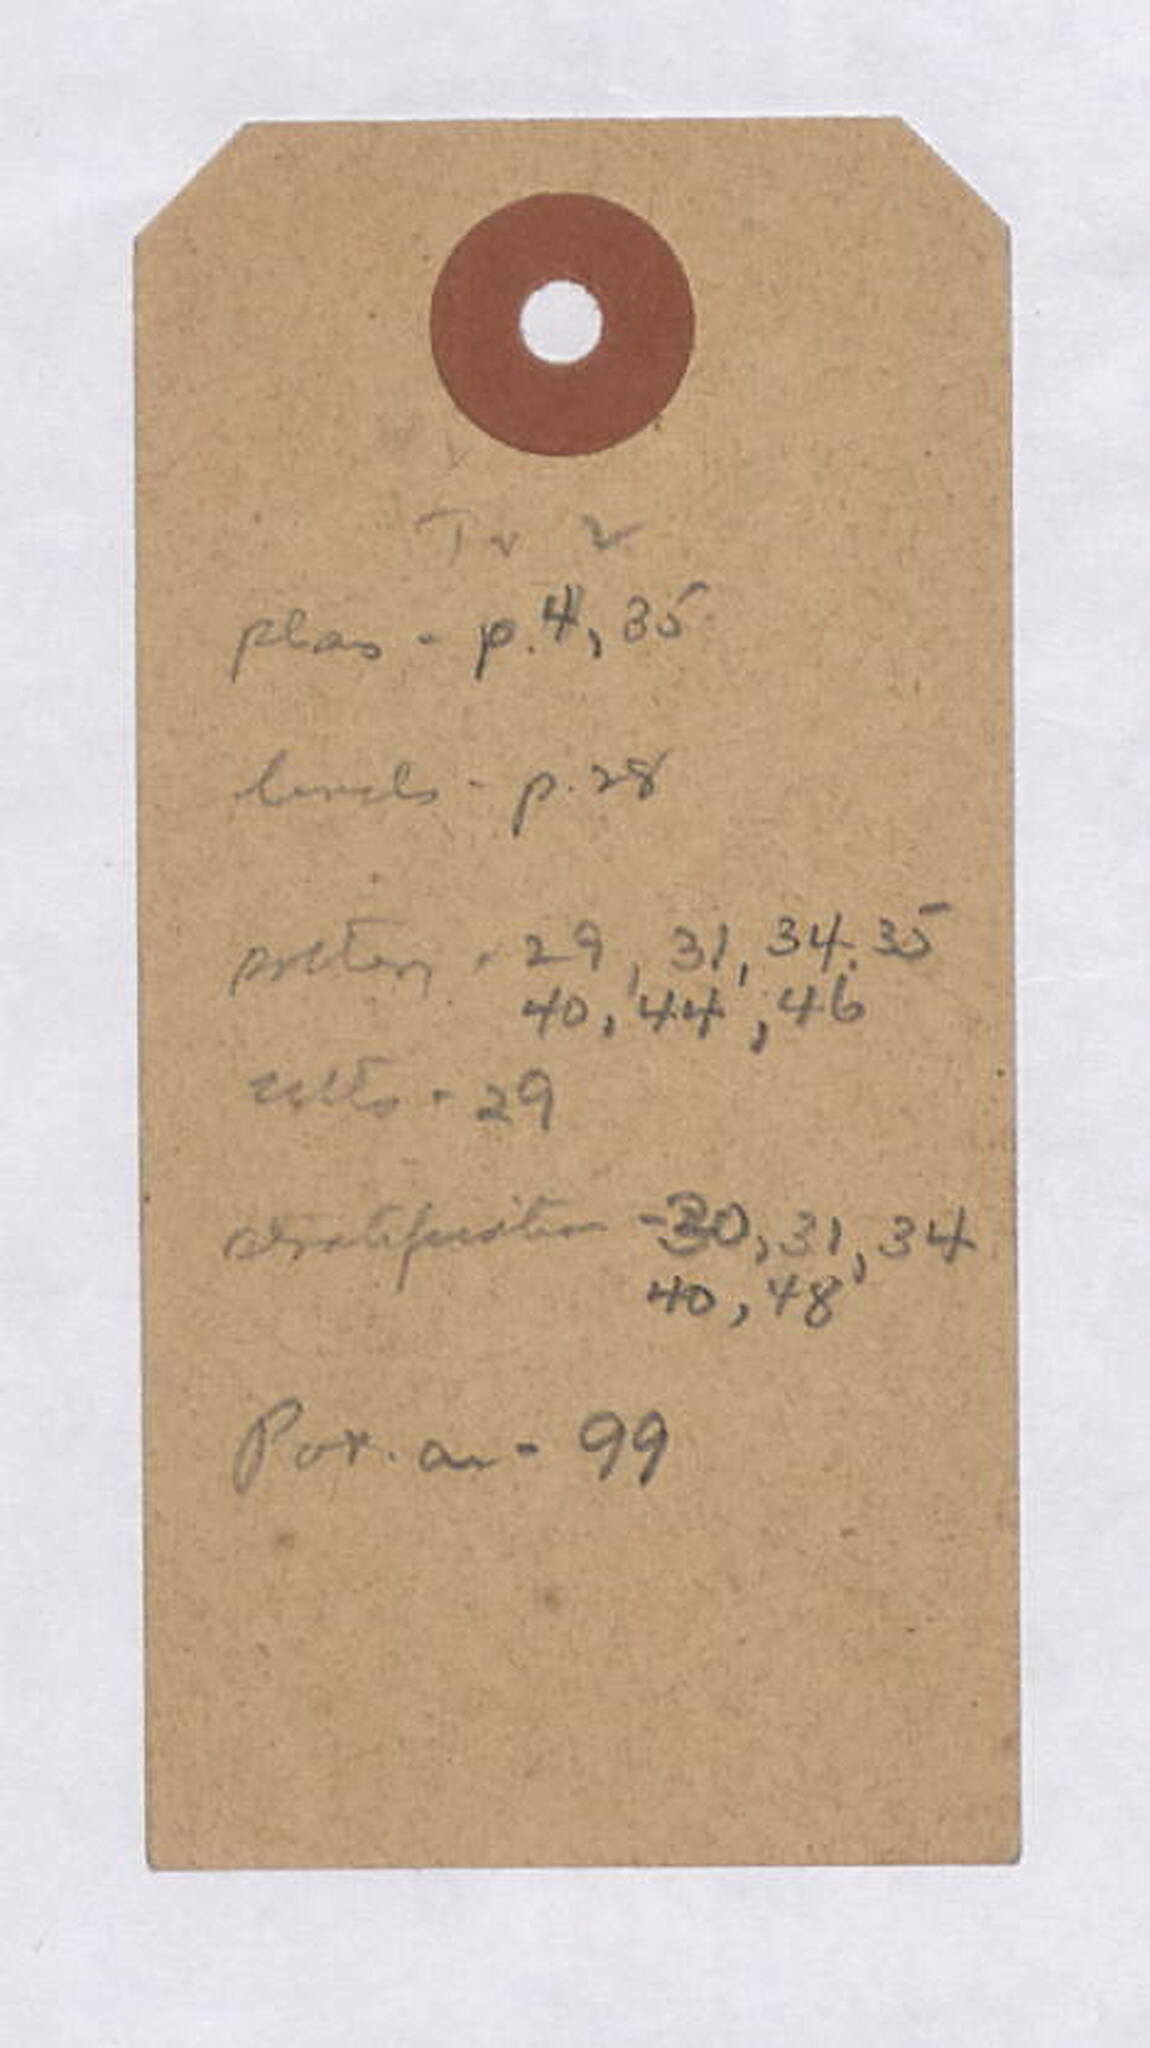 Tr 2
plan - p. 4, 35
levels - p. 28
pottery - 29, 31, 34, 35
40, 44, 46
- 29
stratification - 30, 31, 34
40, 48
Pot. an - 99